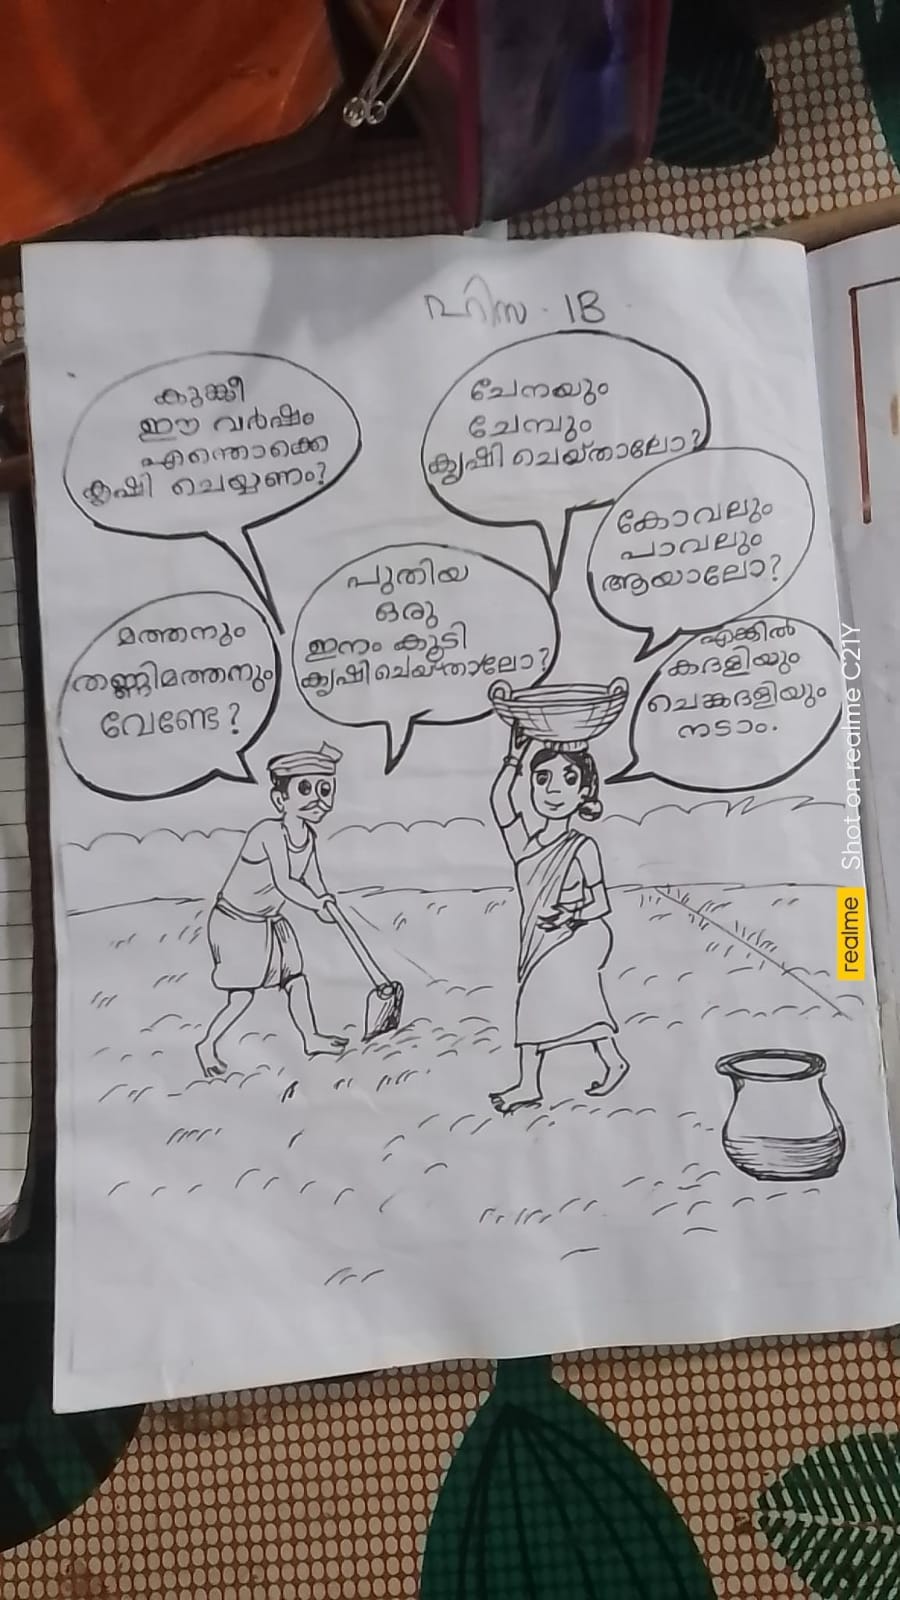 ഹിസ · 1B
കുങ്കീ
ഈ വർഷം
എന്തൊക്കെ
കൃഷി ചെയ്യണം?
ചേനയും
ചേമ്പും
കൃഷി ചെയ്താലോ?
കോവലും
പാവലും
ആയാലോ?
മത്തനും
തണ്ണിമത്തനും
വേണ്ടേ?
പുതിയ
ഒരു
ഇനം കൂടി
കൃഷി ചെയ്താലോ?
എങ്കിൽ
കദളിയും
ചെങ്കദളിയും
നടാം.
realme Shot on realme C21Y